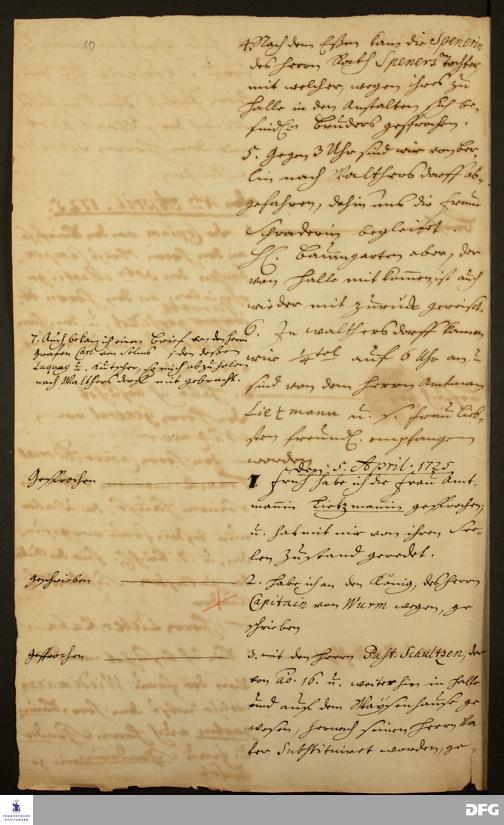 10
4. Nach dem Eßen kam die Spenerin
des Herrn Rath Speners Tochter
mit welcher wegen ihres zu
Halle in den Anstalten sich be-
findl. bruders gesprochen.
5. Gegen 3 Uhr sind wir von ber-
lin nach Walthersdorff ab-
gefahren, dahin uns die Frau
Schraderin begleitet.
H. Baumgarten aber, der
von Halle mitkommen, ist auch
wieder mit zurück gereiset.
6. In Walthersdorff kamen
wir 1/4tel auf 6 Uhr an u.
sind von dem Herrn Amtman
Lietzmann u. s. Frau Lieb-
sten freundl. empfangen
worden.
7. Auch bekam ich einen Brief von dem Herrn
Grafen Carl von Solms, den deßen
Laquay u. Kutscher, mich abzuholen
nach Walthersdorff mit gebracht.
den 5. April. 1725
Gesprochen
1. Früh habe ich die Frau Amt-
mannin Lietzmannin gesprochen,
u. hat mit mir von ihren See-
len Zustand geredet.
geschrieben
2. habe ich an den König, des Herrn
Capitain von Wurm wegen, ge
schrieben
gesprochen
3. mit dem Herrn Past. Schultzen, der
von Ao. 16. u. weiter hin in Halle
und auf dem Waysenhause ge
wesen, hernach seinem Herrn Va
ter Substituiret worden, ge-
FRANCKESCHE
STIFTUNGEN
DFG